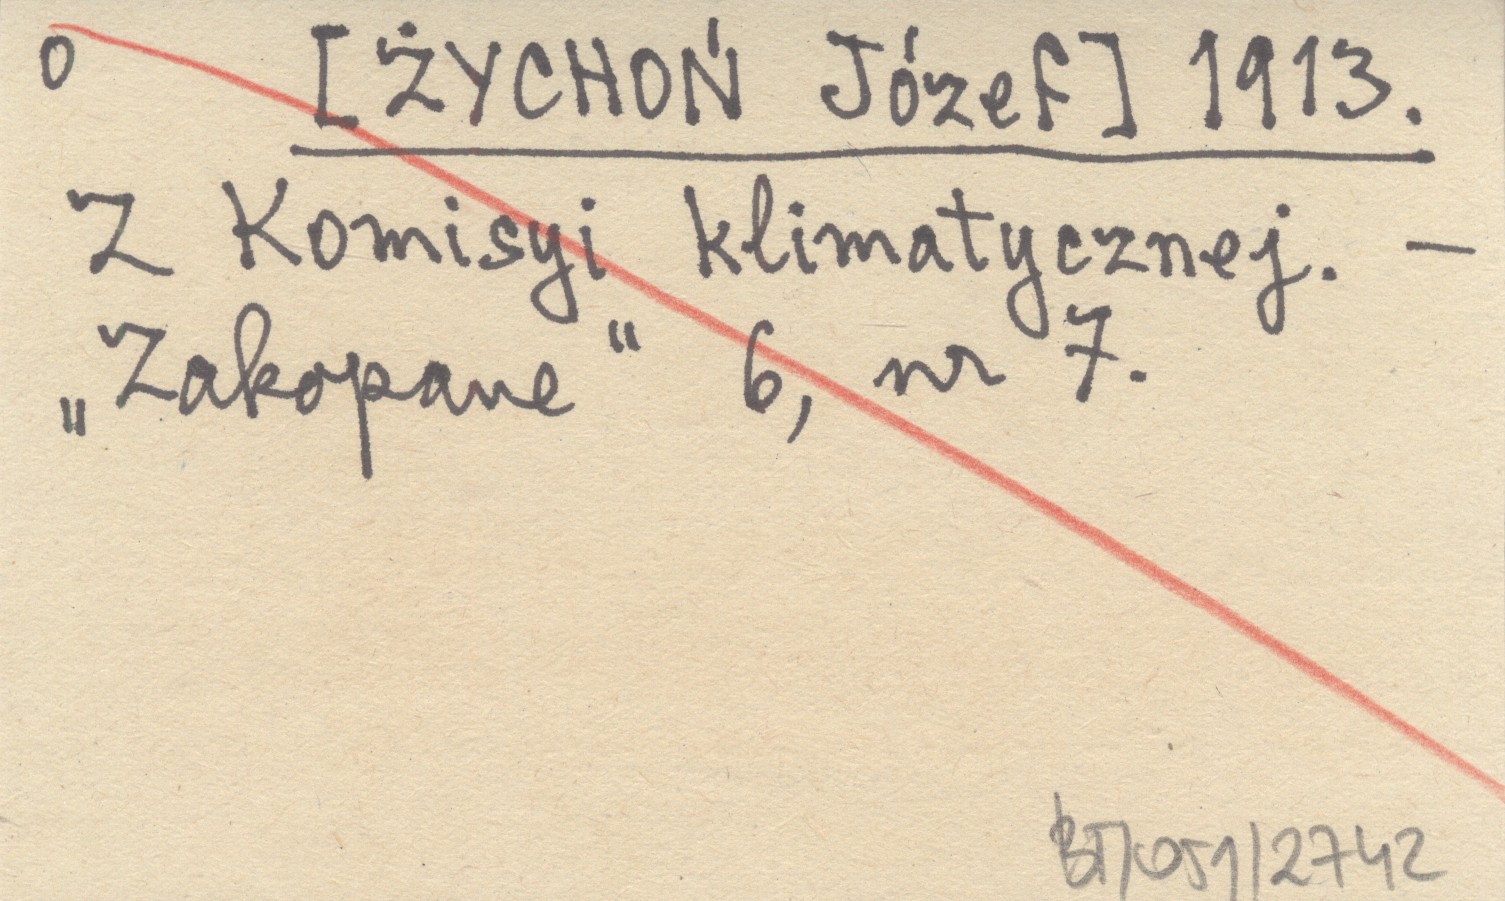 o [ŻYCHOŃ Józef] 1913.
Z Komisyi klimatycznej. —
„Zakopane" 6, nr 7.
BT/051/2742